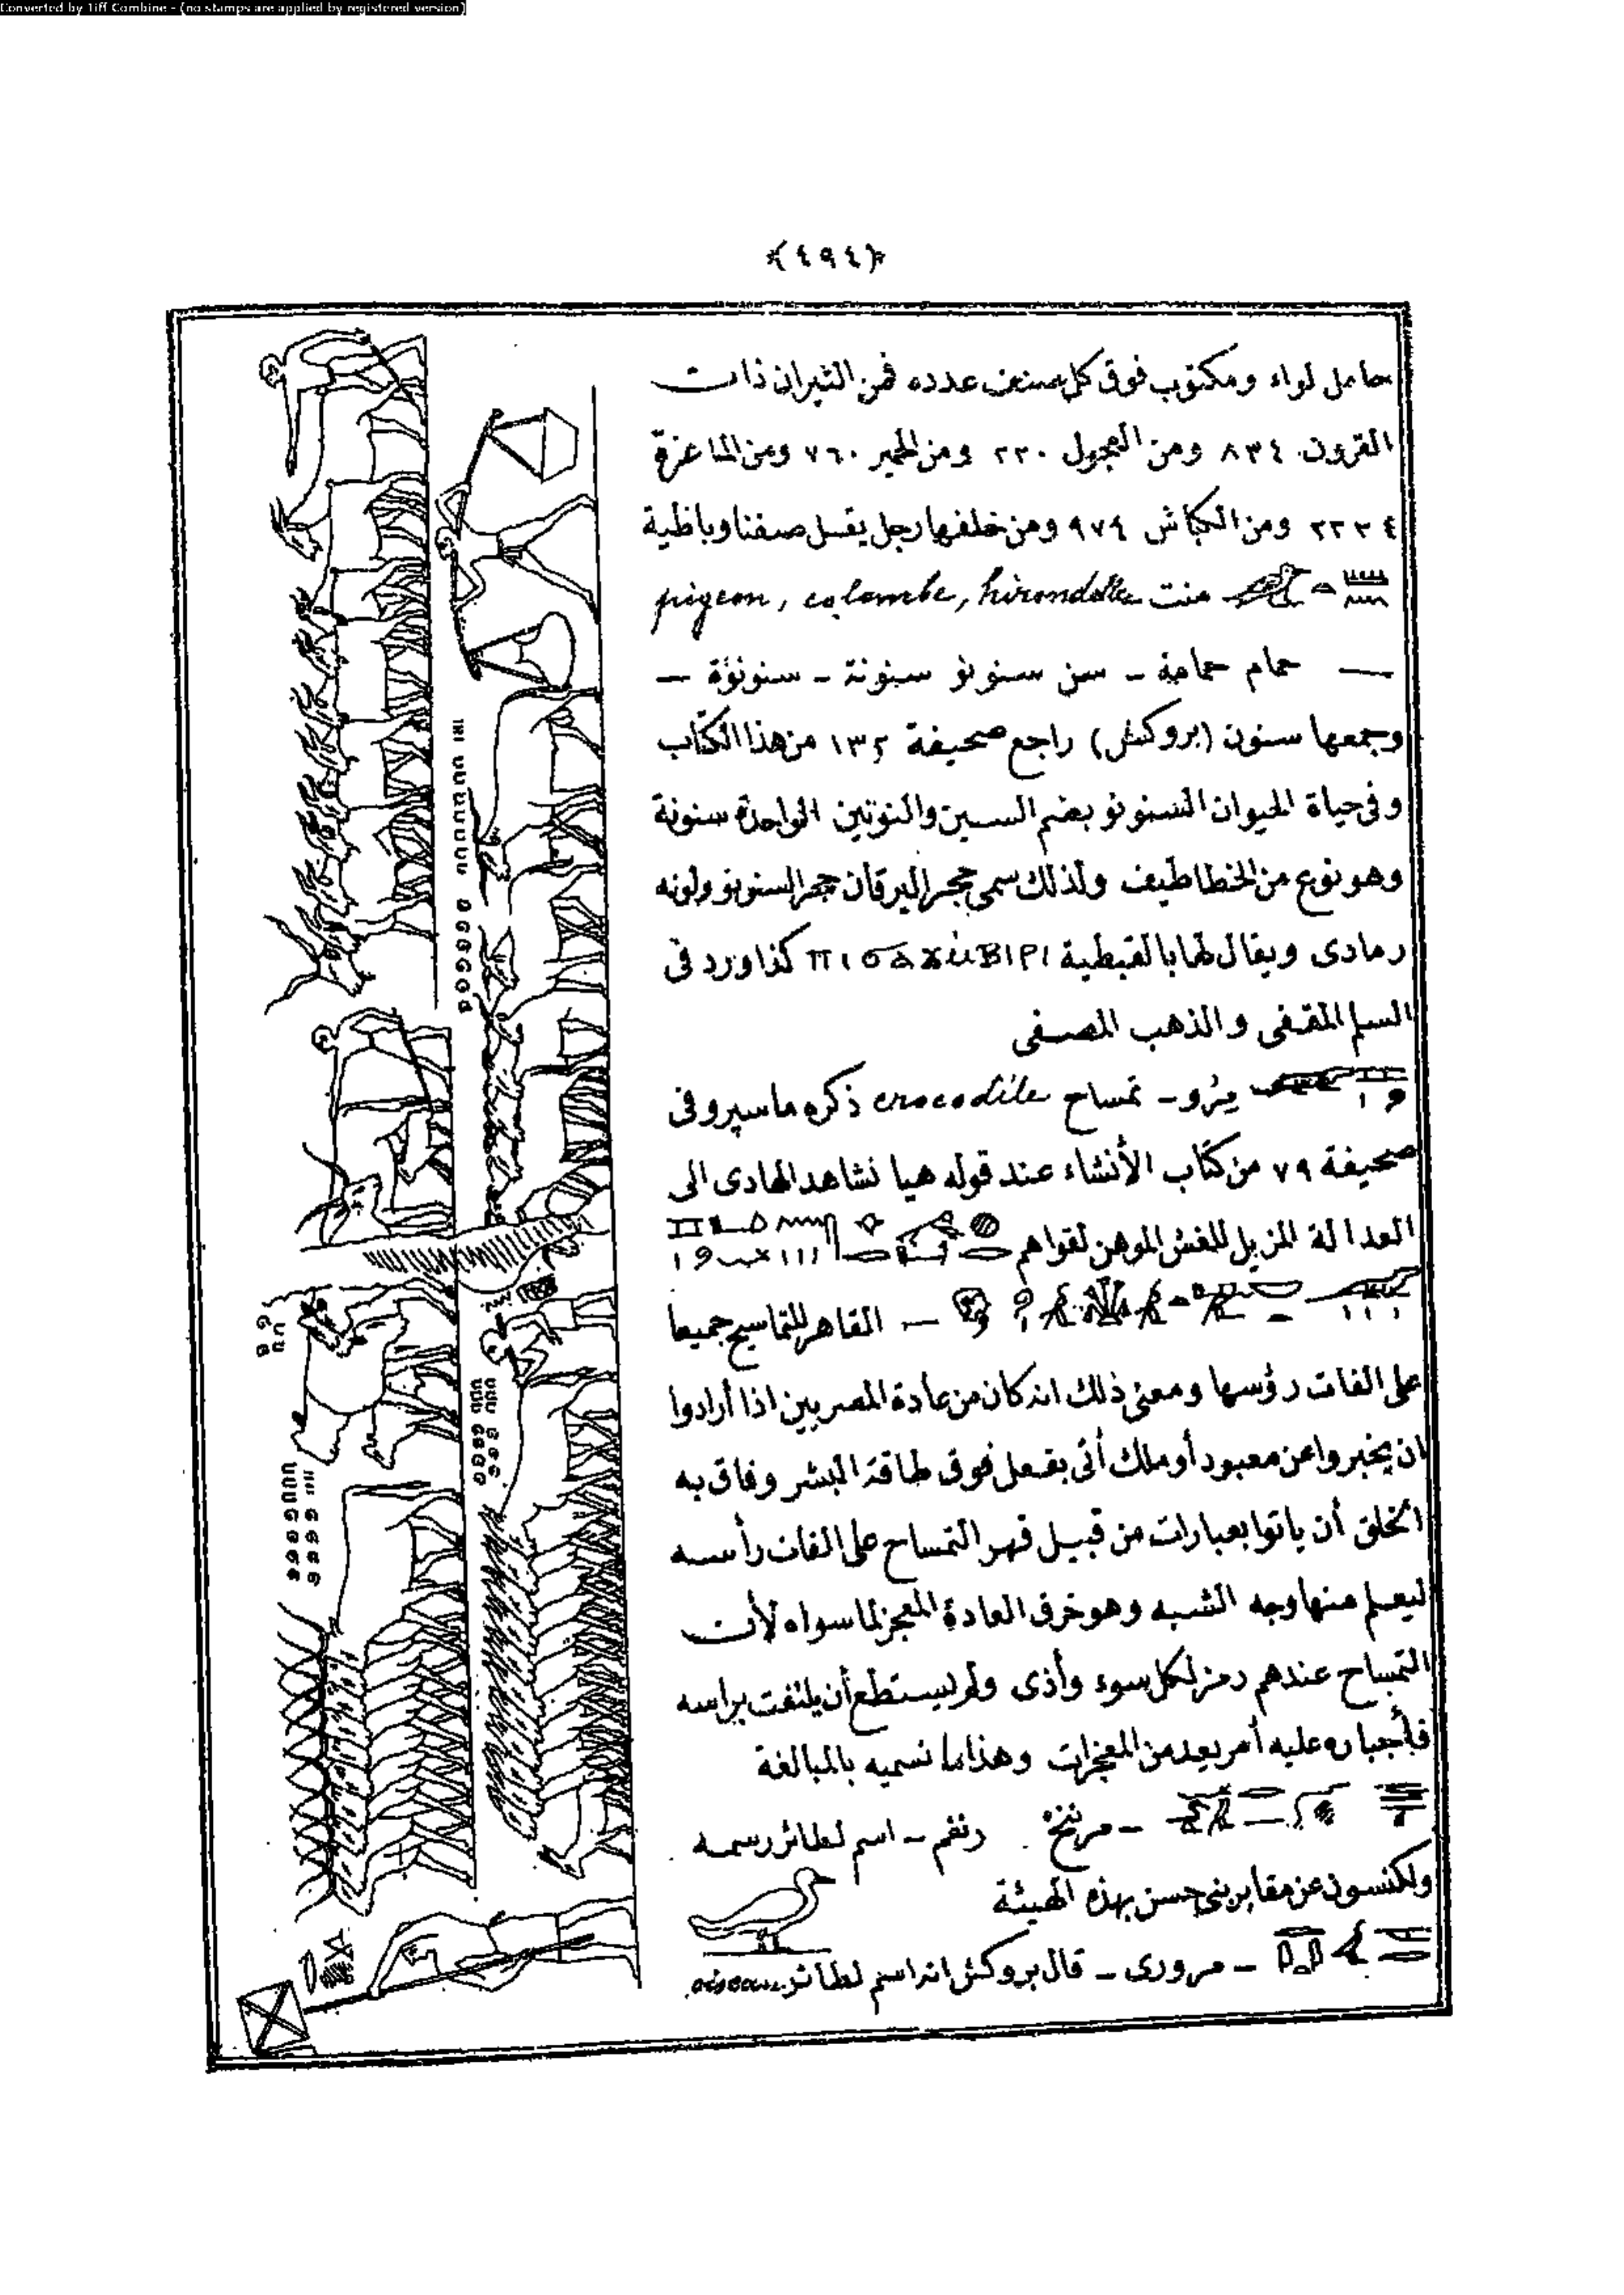 Converted by Tiff Combine - (no stamps are applied by registered version)
﴿٤٩٤﴾
حامل لواء ومكتوب فوق كل صنف عدده فمن الثيران ذات
القرون ٨٣٤ ومن العجول ٢٢٠ ومن الحمير ٧٦٠ ومن الماعزة
٢٢٣٤ ومن الكباش ٩٧٤ ومن خلفها رجل يقسل
منت pigeon, colombe, hirondelle
— حمام حمامة - سن سنونو سنونة - سنونوة —
وجمعها سنون (بروكش) راجع صحيفة ١٣٢ من هذا الكتاب
وفى حياة الحيوان السنونو بضم السين والنونين الواحدة سنونة
وهو نوع من الخطاطيف ولذلك سمى حجر اليرقان حجر السنونو ولونه
رمادى ويقال لها بالقبطية كذا ورد فى
السلم المقفى والذهب المصفى
- تمساح crocodile ذكره ماسپرو فى
صحيفة ٧٩ من كتاب الأنشاء عند قوله هيا نشاهد الهادى الى
العدالة المزيل للغش الموهن لقواهم
— القاهر للتماسيح جميعا
على الفات رؤسها ومعنى ذلك انه كان من عادة المصريين اذا أرادوا
ان يخبروا عن معبود أو ملك أتى بفعل فوق طاقة البشر وفاق به
الخلق أن ياتوا بعبارات من قبيل قهر التمساح على الفات رأسه
ليعلم منها وجه الشبه وهو خرق العادة المعجز لما سواه لأن
التمساح عندهم رمز لكل سوء وأذى ولم يستطع أن يلتفت براسه
فأجباره عليه أمر بعيد من المعجزات وهذا ما نسميه بالمبالغة
- رنفم - اسم لطائر رسمه
ولكنسون عن مقابر بنى حسن بهذه الهيئة
- مرورى - قال بروكش انه اسم لطائر oiseau